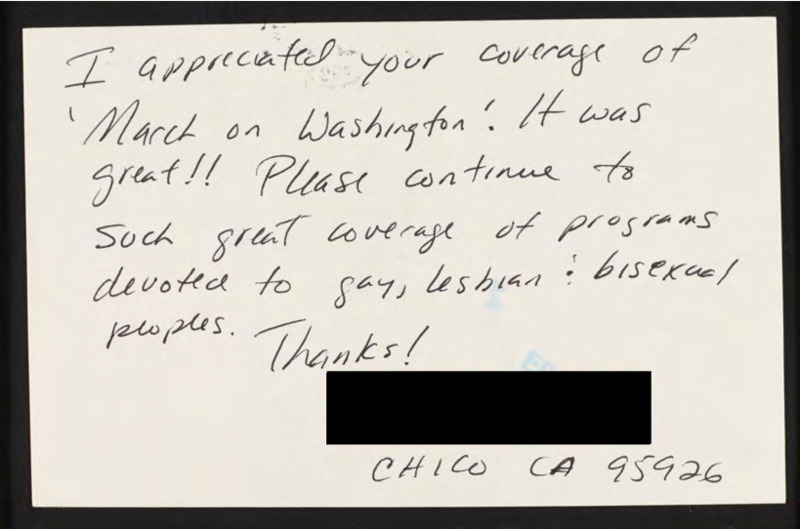 I appreciated your coverage of
'March on Washington'. It was
great!! Please continue to
such great coverage of programs
devoted to gay, lesbian & bisexual
peoples.
Thanks!
CHICO CA 95926